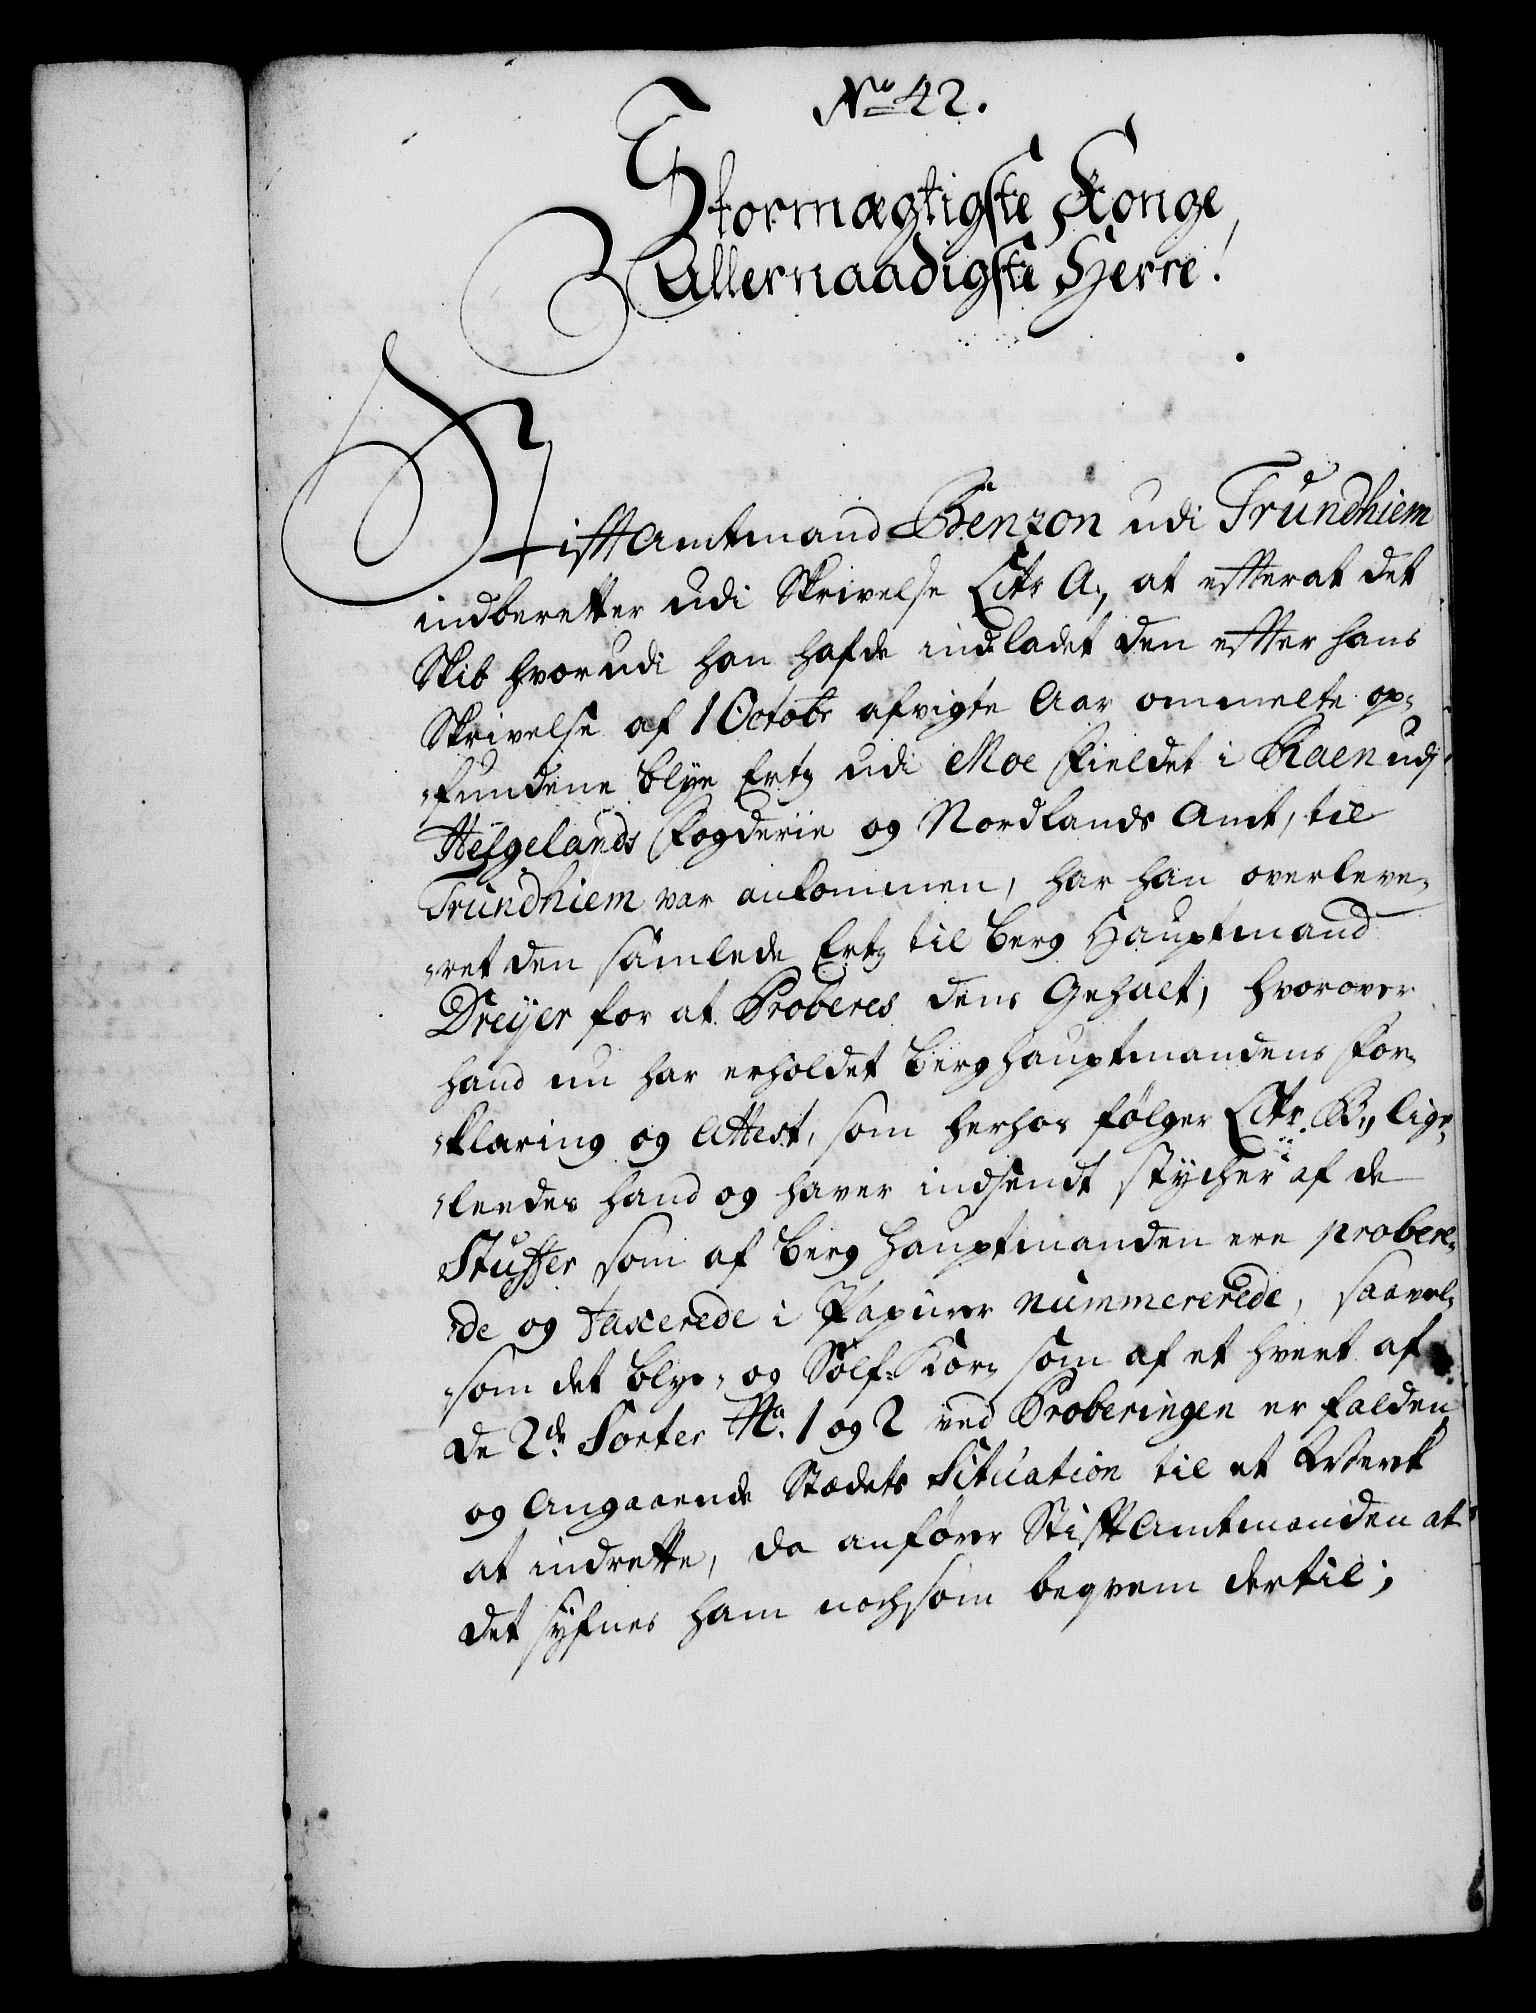 No 42.
Stormægtigste Konge,
Allernaadigste Herre!
Stiftamtmand Benzon udi Trundhiem
indberetter udi Skrivelse Litr A., at efterat det
Skib hvorudi han hafde indladet den efter hans
Skrivelse af 1 Octobr afvigte Aar ommelte op-
fundene blye Ertz udi Moe Fieldet i Raen udj
Helgelands Fogderie og Nordlands Amt, til
Trundhiem var ankommen, har han overleve-
ret den samlede Ertz til Berg Hauptmand
Dreÿer for at Proberes dens Gehalt, hvorover
hand nu har erholdet Berghauptmandens For-
klaring og Attest, som herhos følger Litr. B., lige-
leedes hand og haver indsendt stÿcher af de
Stuffer som af Berg Hauptmanden ere probere-
de og taxerede i Papirer nummererede, saavel-
som det blye- og Sølf-Korn som af et hvert af
de 2de Sorter No. 1 og 2 ved Proberingen er falden
og Angaaende Stædets Situation til et Werk
at indrette, da anfører Stiftamtmanden at
det sÿfnes ham nochsom beqvem dertil;